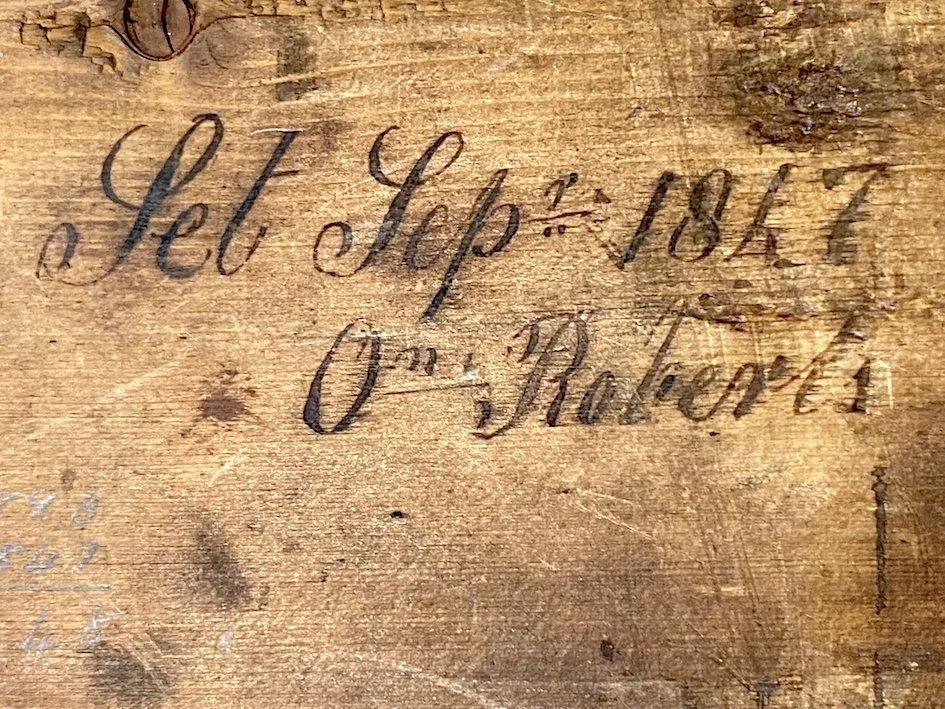 Set Sepr 1847
On Roberts